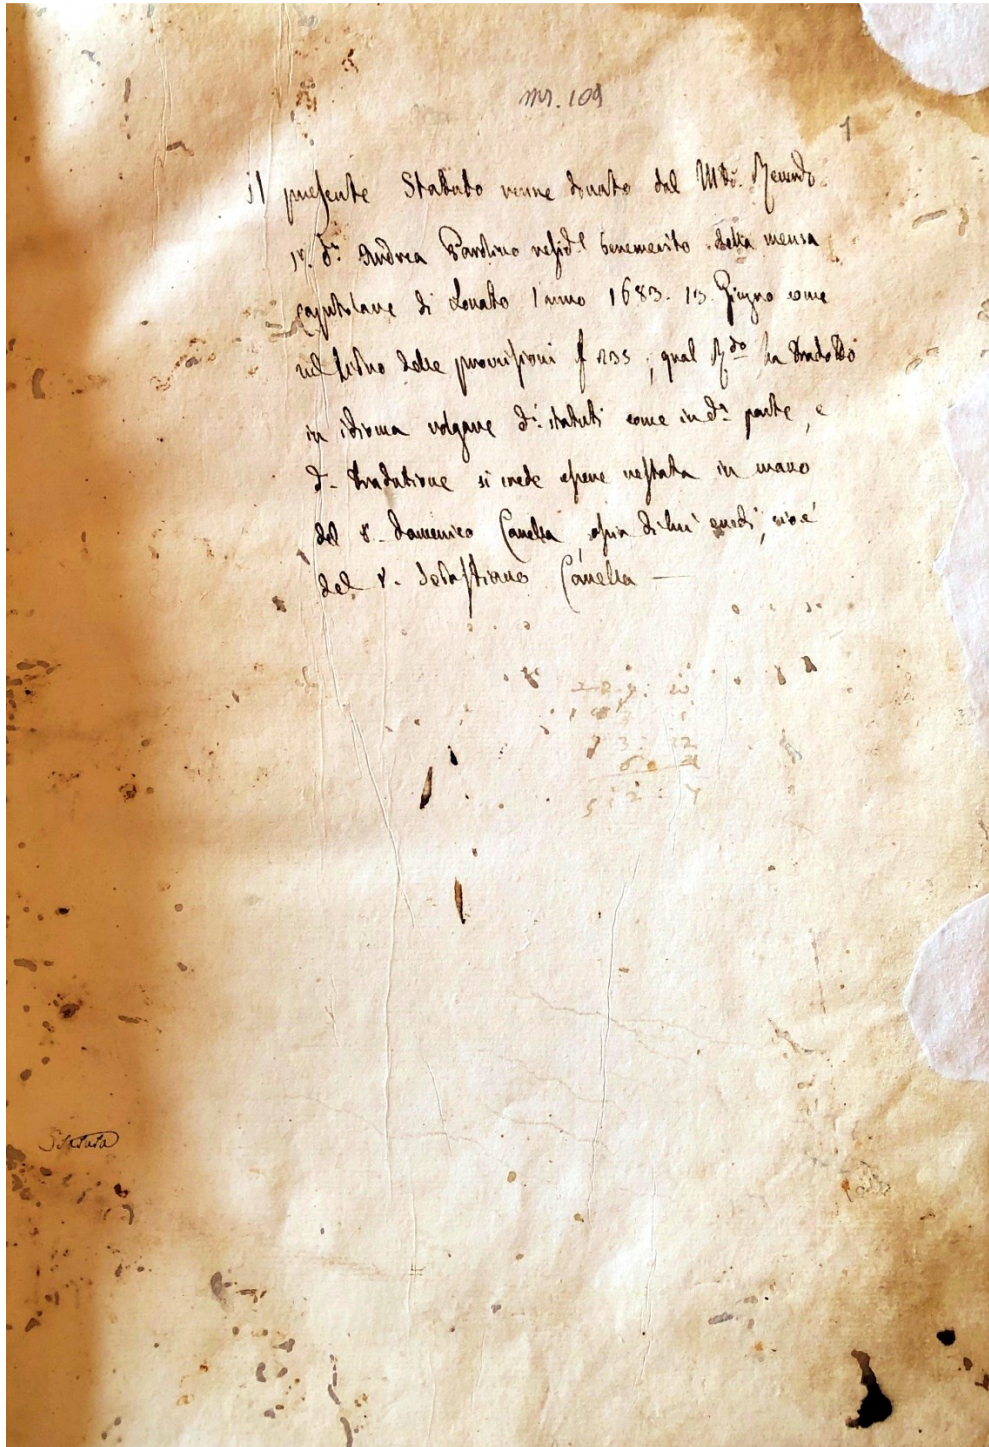 ms. 109
1
Il presente Statuto venne donato dal M.to Reverndo
Sr. Dn. Andrea Parolino resid.l benemerito della mensa
capitolare di Lonato l'anno 1683. 13. Giugno come
nel Libro delle provisioni f 235, qual R.do ha tradotto
in idioma volgare d.i statuti come in d.a parte, e
d.a tradutione si crede essere restata in mano
del S. Domenico Canella, o sia di lui eredi, cioè
del S. Sebastiano Canella —
Statuta